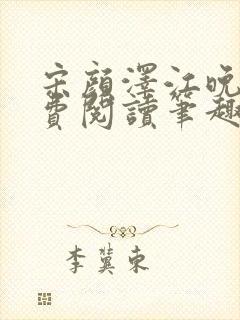 宋顏澤江晚
費閱讀筆趣
李冀東